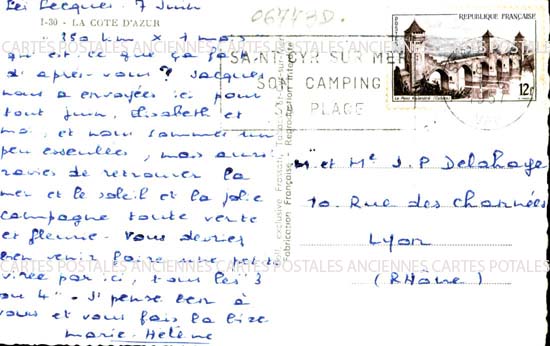 Les Lecques. 7 Juin
I-30 - LA COTE D'AZUR
350 km x 1 mois
qu'est ce que ça fait
d'après-vous ? Jacques
nous a envoyées ici pour
tout juin, Elisabeth et
moi, et nous sommes un
peu esseulées, mais aussi
ravies de retrouver la
mer et le soleil et la jolie
campagne toute verte
et fleurie - Vous devriez
bien venir faire une petite
virée par ici, tous les "3
ou 4" - J'pense bien à
vous et vous fais la bise
Marie-Hélène
06773D.
SAINT CYR SUR MER
SON CAMPING
SA PLAGE
POSTES
REPUBLIQUE FRANÇAISE
12F
Le Pont Valentré (Cahors)
Fabrication Française - Reproduction Interdite
M et Me J. P Delahaye
10. Rue des charmées
Lyon
(RHône)
CARTES POSTALES ANCIENNES CARTES POSTALES ANCIENNES CARTES POSTALES
CARTES POSTALES ANCIENNES CARTES POSTALES